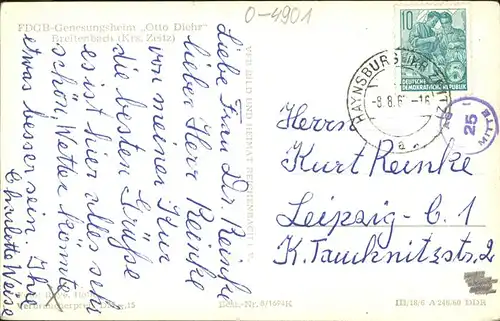 0-4901
FDGB-Genesungsheim „Otto Diehr"
Breitenbach (Krs. Zeitz)
Liebe Frau Dr. Reinke
lieber Herr Reinke
von meiner Kur
die besten Grüße
es ist hier alles sehr
schön, Wetter könnte
etwas besser sein. Ihre
Charlotte Weise
VEB BILD UND HEIMAT REICHENBACH I. V.
10
5
DEUTSCHE
DEMOKRATISCHE REPUBLIK
HAYNSBURG ZEITZ
-8.8.6 -16
a
25
Herrn
Kurt Reinke
Leipzig-C. 1
K. Tauchnitzstr. 2
Verbraucherpr. 15
Best.-Nr. 8/1694K
III/18/6 A 246/60 DDR